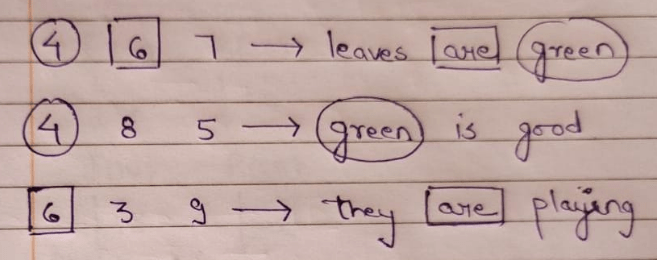 4 6 7 → leaves are green
4 8 5 → green is good
6 3 9 → they are playing